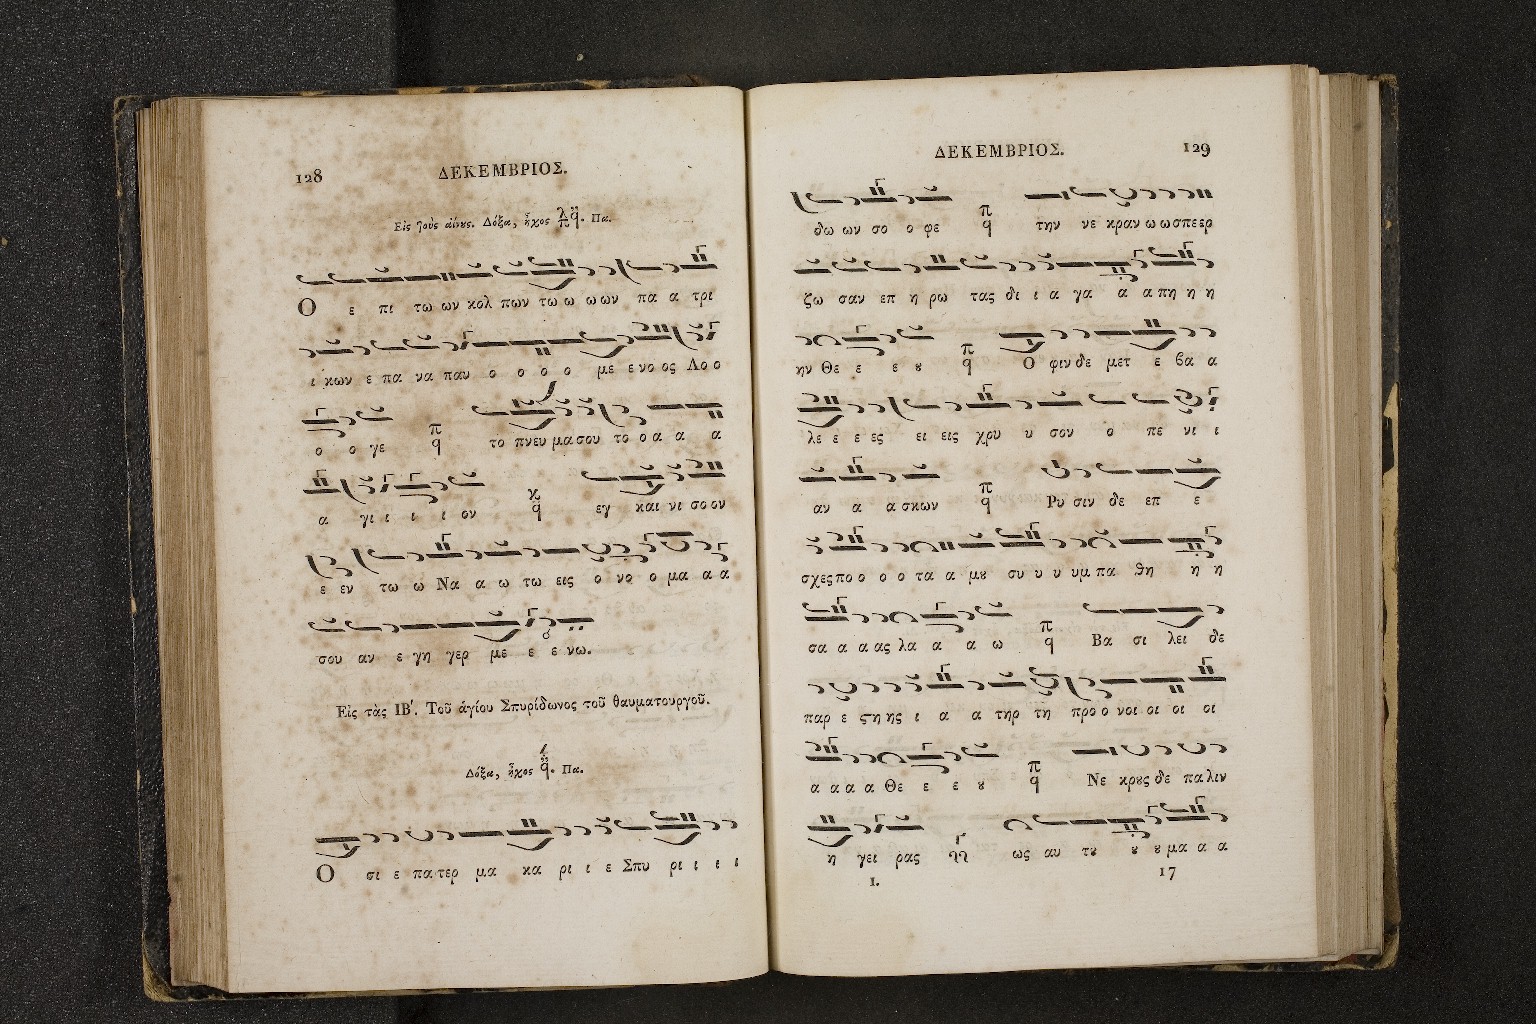 128
ΔΕΚΕΜΒΡΙΟΣ.
Εἰς τοὺς αἴνους. Δόξα, ἦχος λ π q. Πα.
Ο ε πι τω ων κολ πων τω ω ω ων πα α τρι
ι κων ε πα να παυ ο ο ο ο με ε νο ος Λο ο
ο ο γε π q το πνευ μα σου το ο α α α
α γι ι ι ι ον κ q εγ και νι σο ον
ε εν τω ω Να α ω τω εις ο νο ο μα α α
σου αν ε γη γερ με ε ε νω.
Εἰς τὰς ΙΒ΄. Τοῦ ἁγίου Σπυρίδωνος τοῦ θαυματουργοῦ.
Δόξα, ἦχος q. Πα.
Ο σι ε πα τερ μα κα ρι ι ε Σπυ ρι ι ι ι
ΔΕΚΕΜΒΡΙΟΣ.
129
δω ων σο ο φε π q την νε κραν ω ω σπε ερ
ζω σαν επ η ρω τας δι ι α γα α α πη η η
ην Θε ε ε ȣ π q Ο φιν δε μετ ε βα α
λε ε ε ες ει εις χρυ υ σον ο πε νι ι
αν α α σκων π q Ρυ σιν δε επ ε
σχες πο ο ο ο τα α μȣ συ υ υ υμ πα θη η η
σα α α ας λα α α ω π q Βα σι λει δε
παρ ε ϛη ης ι α α τηρ τη προ ο νοι οι οι οι
α α α α Θε ε ε ȣ π q Νε κρȣς δε πα λιν
η γει ρας ως αυ τȣ ȣ ȣ μα α α
I.
17